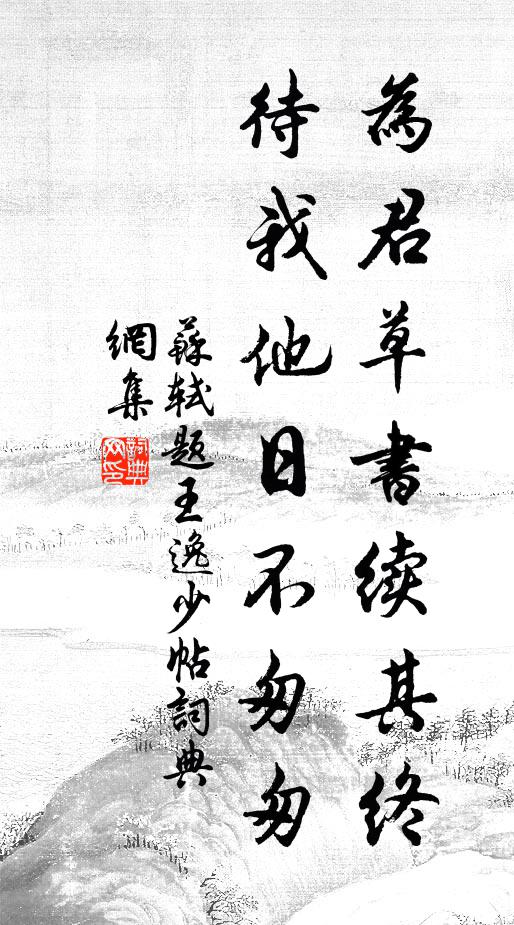 為君草書續其終
待我他日不匆匆
蘇軾題王逸少帖詞典
網集
詞典
网印